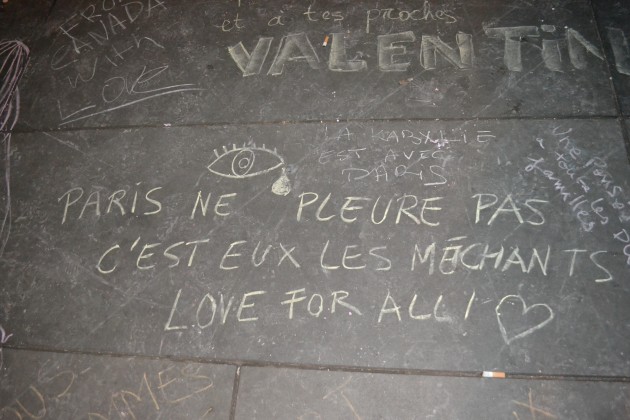 FROM
CANADA
With
LOVE
et à tes proches
VALENTIN
LA KABYLIE
EST AVEC
PARIS
Une pensée
à toutes les
familles
PARIS NE PLEURE PAS
C'EST EUX LES MÉCHANTS
LOVE FOR ALL!